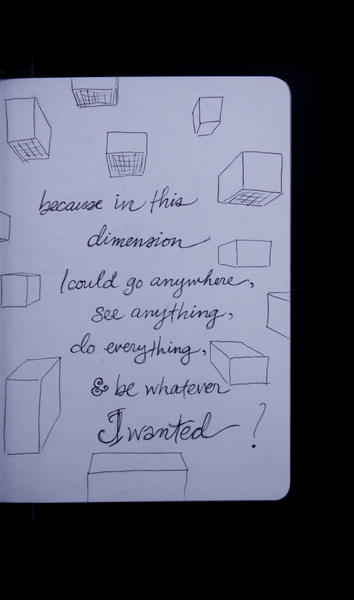 because in this
dimension
I could go anywhere,
see anything,
do everything,
& be whatever
I wanted ?